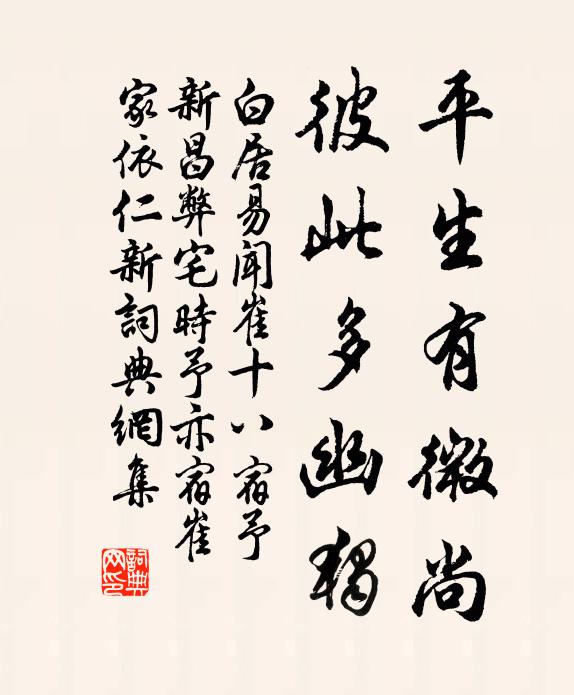 平生有微尚
彼此多幽獨
白居易聞崔十八宿予
新昌弊宅時予亦宿崔
家依仁新詞典網集
詞典
网印